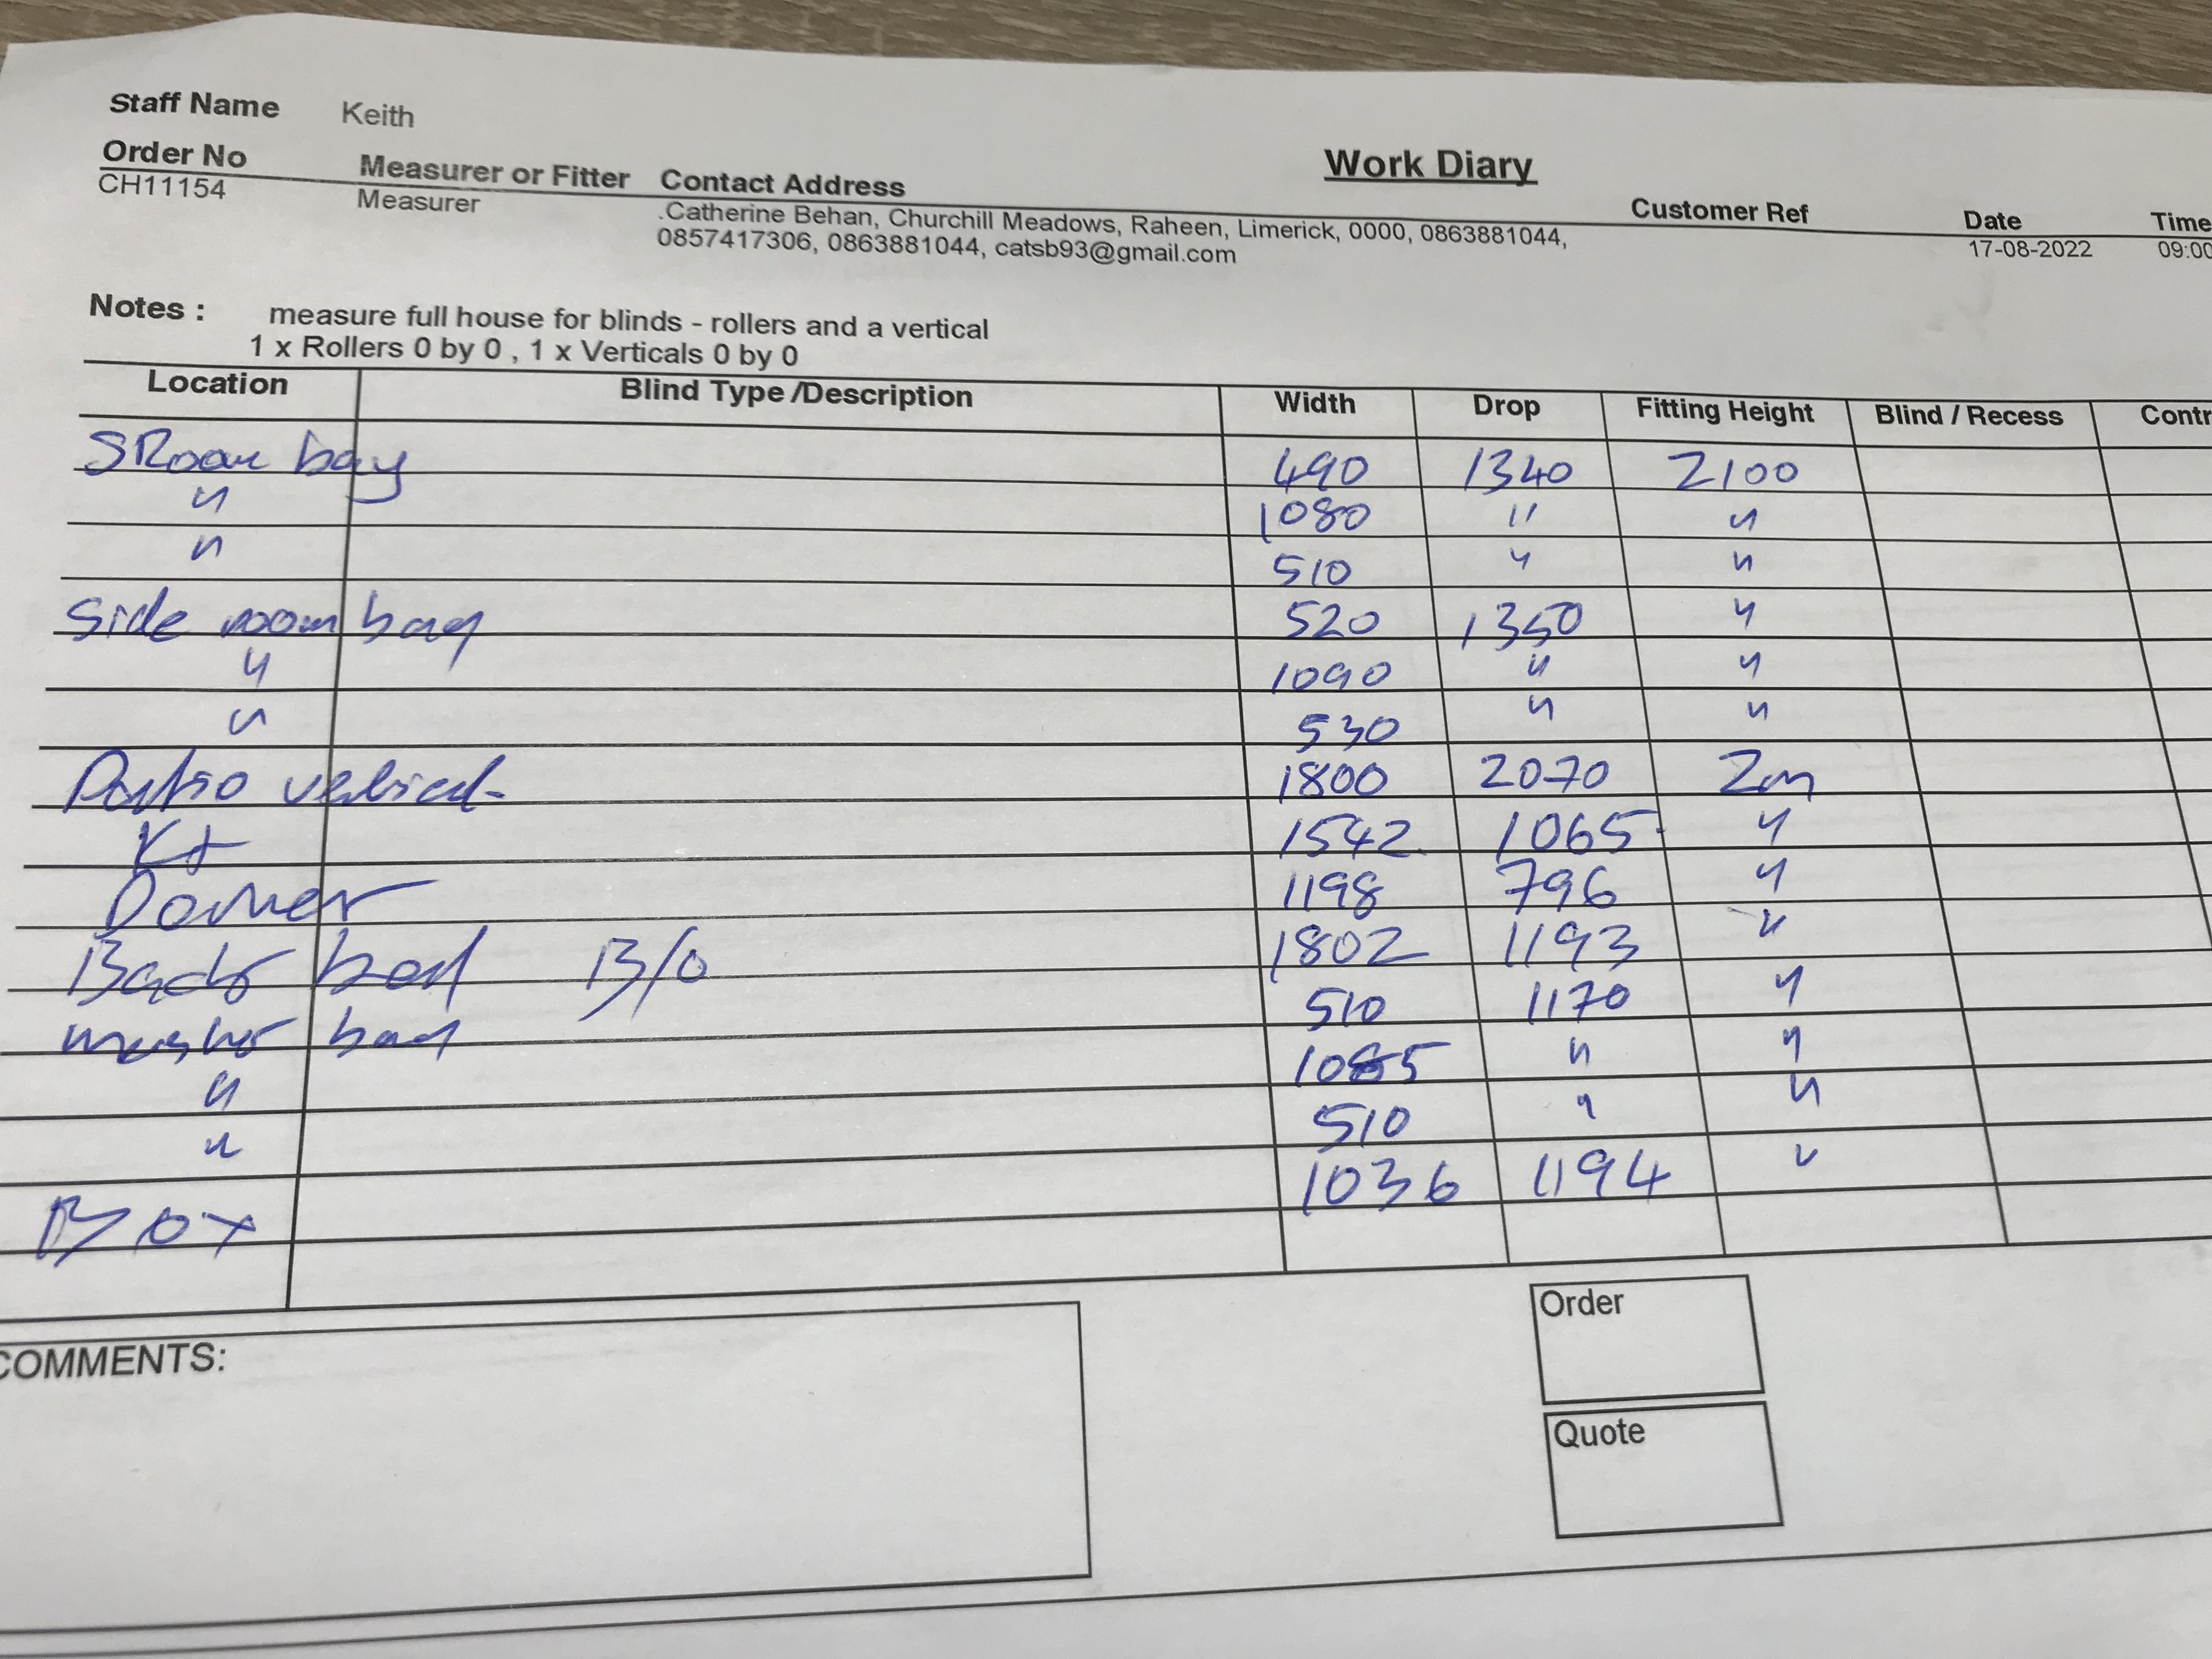 Staff Name Keith
Work Diary
Order No Measurer or Fitter Contact Address Customer Ref Date Time
CH11154 Measurer .Catherine Behan, Churchill Meadows, Raheen, Limerick, 0000, 0863881044, 17-08-2022 09:00
0857417306, 0863881044, catsb93@gmail.com
Notes : measure full house for blinds - rollers and a vertical
1 x Rollers 0 by 0 , 1 x Verticals 0 by 0
Location Blind Type /Description Width Drop Fitting Height Blind / Recess Contr
SRoom bay 490 1340 2100
" 1080 " "
" 510 " "
Side room bay 520 1350 "
" 1090 " "
" 530 " "
Patio vertical 1800 2070 2m
Kt 1542 1065 "
1198 796 "
Back bed B/O 1802 1193 "
master bed 510 1170 "
" 1085 " "
" 510 " "
Box 1036 1194 "
COMMENTS:
Order
Quote